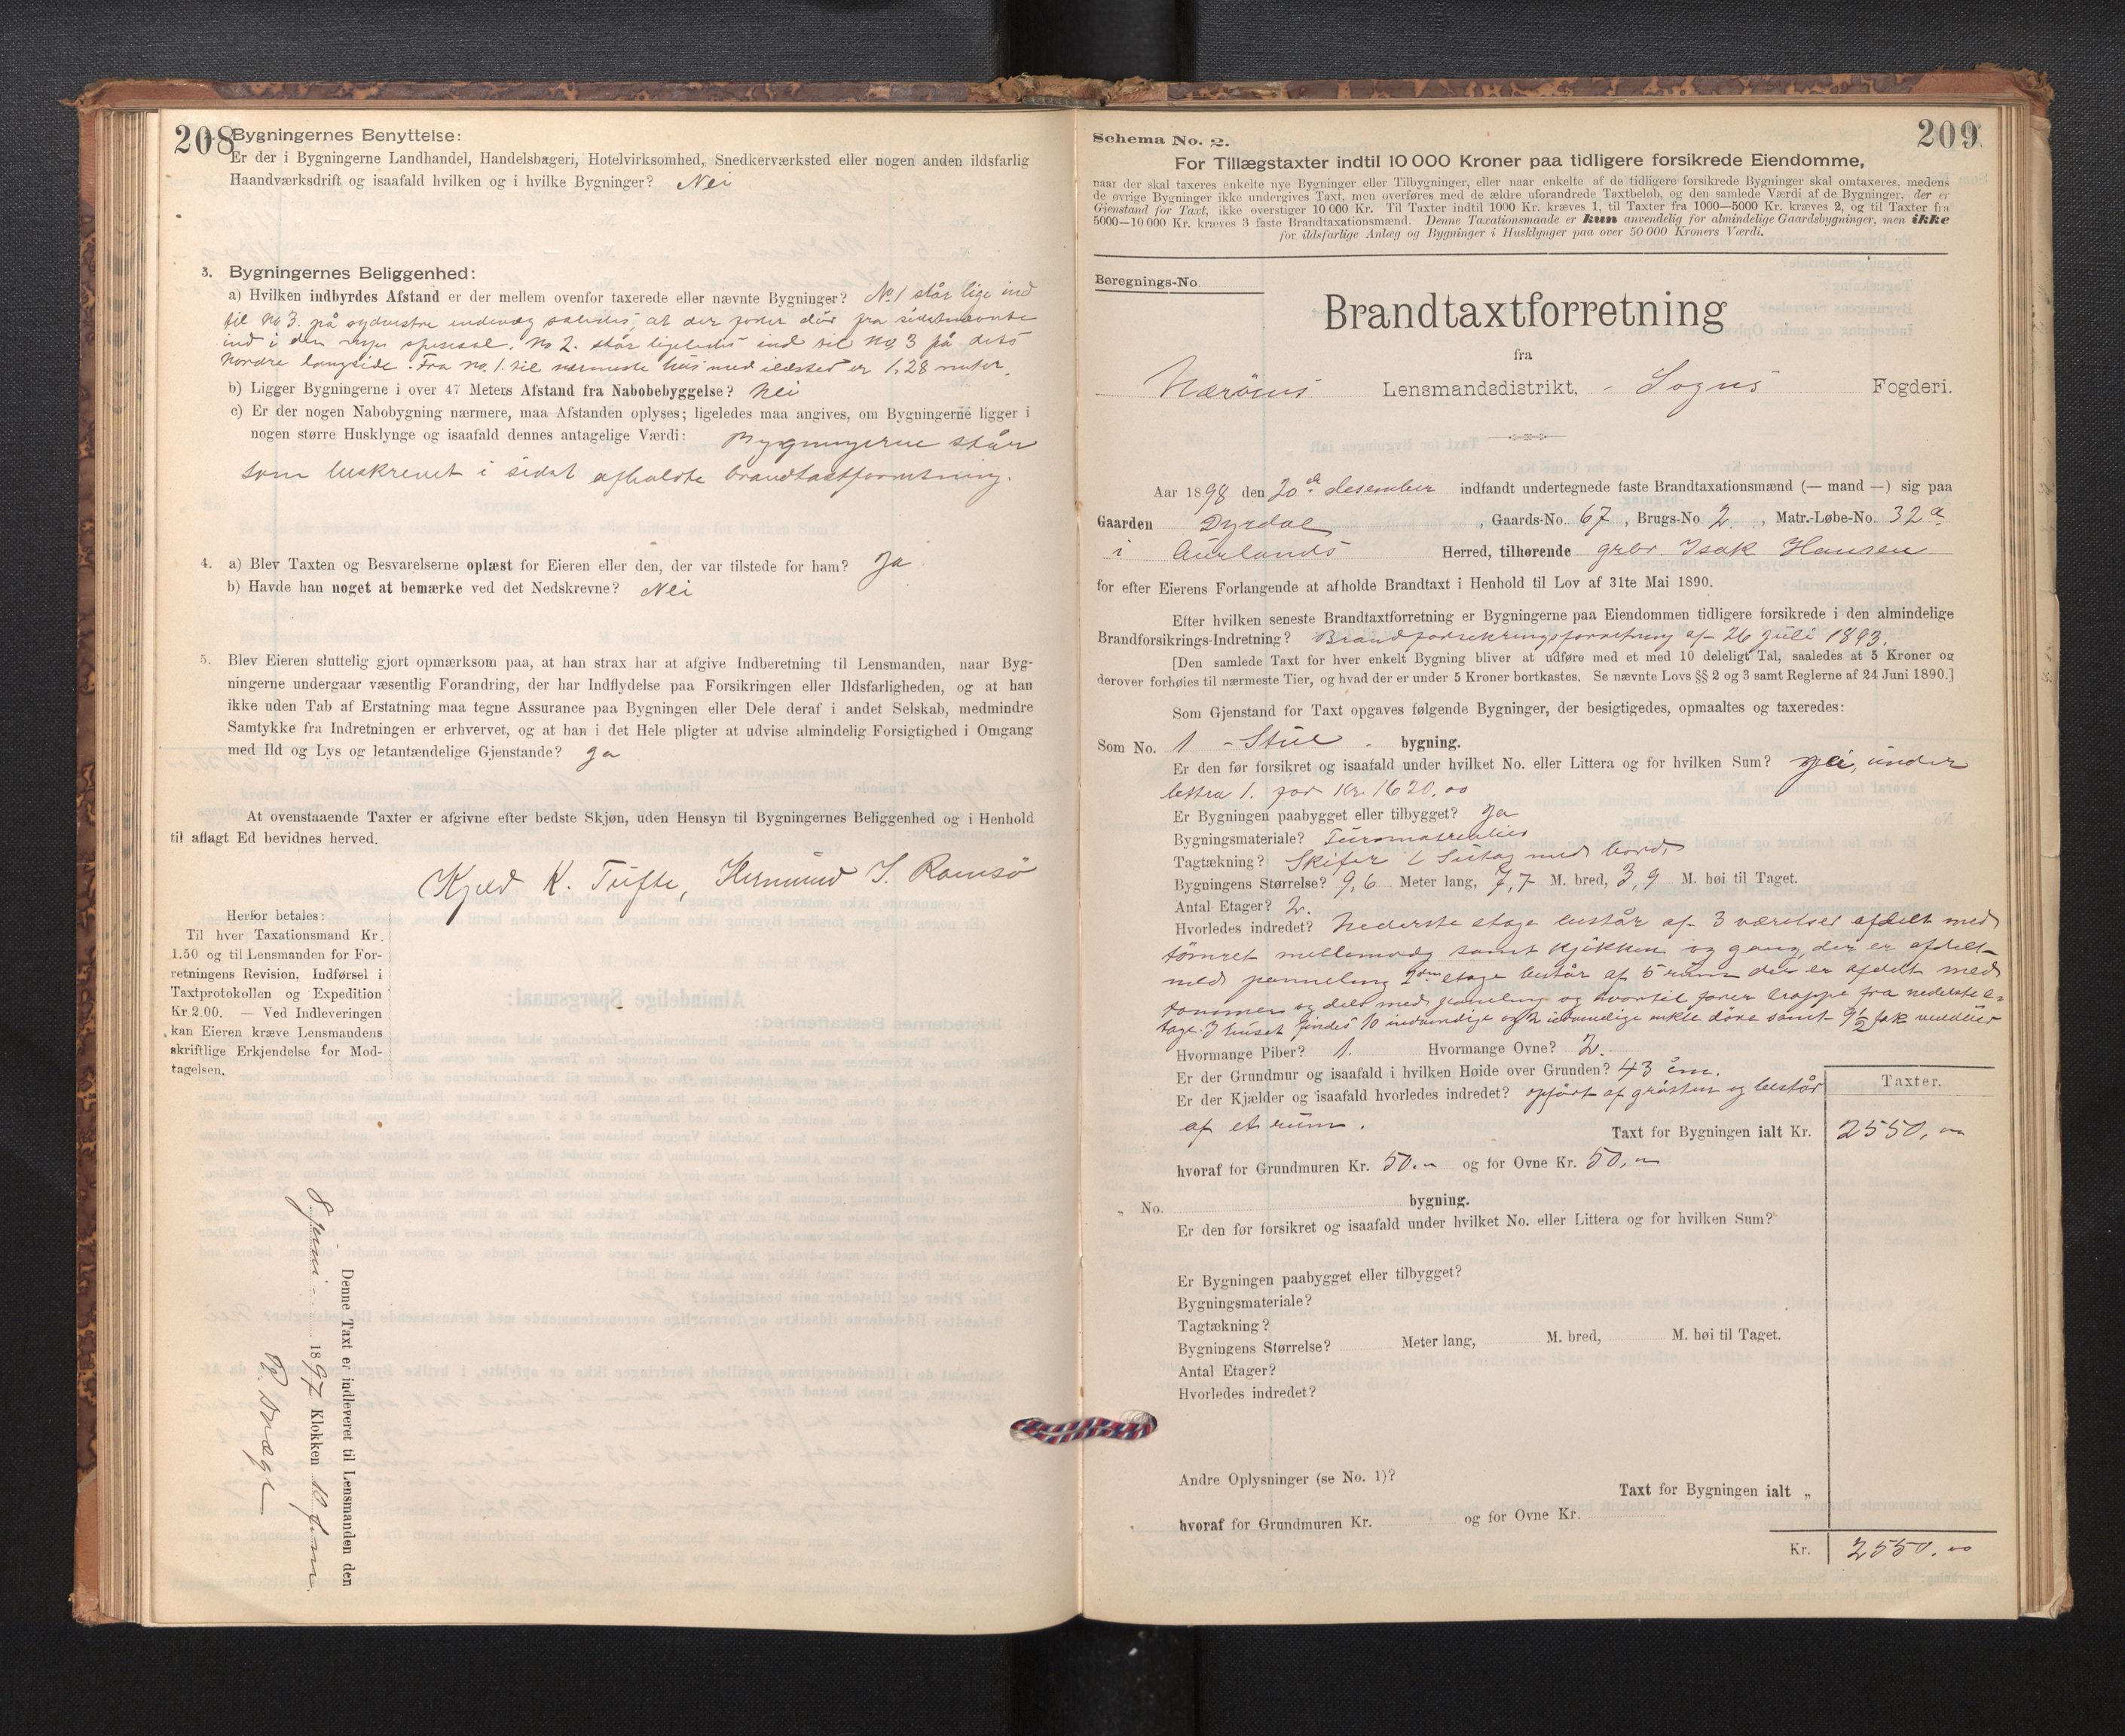 208
Bygningernes Benyttelse:
Er der i Bygningerne Landhandel, Handelsbageri, Hotelvirksomhed, Snedkerværksted eller nogen anden ildsfarlig
Haandværksdrift og isaafald hvilken og i hvilke Bygninger? Nei
3. Bygningernes Beliggenhed:
a) Hvilken indbyrdes Afstand er der mellem ovenfor taxerede eller nævnte Bygninger? No. 1 står lige ind
til No 3. på sydvestre endevæg således, at der fører dör fra sidstnævnte
ind i den nye No 2. står ligeledes ind til No 3 på dets
nordre langside. Fra No. 1. til nærmeste hus med ildsted er 1,28 meter.
b) Ligger Bygningerne i over 47 Meters Afstand fra Nabobebyggelse? Nei
c) Er der nogen Nabobygning nærmere, maa Afstanden oplyses; ligeledes maa angives, om Bygningerne ligger i
nogen større Husklynge og isaafald dennes antagelige Værdi: Bygningerne står
som beskrevet i sidst afholdte brandtaxtforretning.
4. a) Blev Taxten og Besvarelserne oplæst for Eieren eller den, der var tilstede for ham? Ja
b) Havde han noget at bemærke ved det Nedskrevne? Nei
5. Blev Eieren sluttelig gjort opmærksom paa, at han strax har at afgive Indberetning til Lensmanden, naar Byg-
ningerne undergaar væsentlig Forandring, der har Indflydelse paa Forsikringen eller Ildsfarligheden, og at han
ikke uden Tab af Erstatning maa tegne Assurance paa Bygningen eller Dele deraf i andet Selskab, medmindre
Samtykke fra Indretningen er erhvervet, og at han i det Hele pligter at udvise almindelig Forsigtighed i Omgang
med Ild og Lys og letantændelige Gjenstande? Ja
At ovenstaaende Taxter er afgivne efter bedste Skjøn, uden Hensyn til Bygningernes Beliggenhed og i Henhold
til aflagt Ed bevidnes herved.
Kjeld K. Tufte, Hermund S. Ramsö
Herfor betales:
Til hver Taxationsmand Kr.
1.50 og til Lensmanden for For-
retningens Revision, Indførsel i
Taxtprotokollen og Expedition
Kr. 2.00. — Ved Indleveringen
kan Eieren kræve Lensmandens
skriftlige Erkjendelse for Mod-
tagelsen.
Denne Taxt er indleveret til Lensmanden den
9 juni 1897 Klokken 10 fm.
209
Schema No. 2.
For Tillægstaxter indtil 10 000 Kroner paa tidligere forsikrede Eiendomme,
naar der skal taxeres enkelte nye Bygninger eller Tilbygninger, eller naar enkelte af de tidligere forsikrede Bygninger skal omtaxeres, medens
de øvrige Bygninger ikke undergives Taxt, men overføres med de ældre uforandrede Taxtbeløb, og den samlede Værdi af de Bygninger, der er
Gjenstand for Taxt, ikke overstiger 10 000 Kr. Til Taxter indtil 1000 Kr. kræves 1, til Taxter fra 1000—5000 Kr. kræves 2, og til Taxter fra
5000—10 000 Kr. kræves 3 faste Brandtaxationsmænd. Denne Taxationsmaade er kun anvendelig for almindelige Gaardsbygninger, men ikke
for ildsfarlige Anlæg og Bygninger i Husklynger paa over 50 000 Kroners Værdi.
Beregnings-No.
Brandtaxtforretning
fra
Nærøens Lensmandsdistrikt, - Sogns Fogderi.
Aar 1898 den 20de desember indfandt undertegnede faste Brandtaxationsmænd (— mand —) sig paa
Gaarden Dyrdal, Gaards-No. 67, Brugs-No 2., Matr.-Løbe-No. 32a
i Aurlands Herred, tilhørende grbr. Isak Hansen
for efter Eierens Forlangende at afholde Brandtaxt i Henhold til Lov af 31te Mai 1890.
Efter hvilken seneste Brandtaxtforretning er Bygningerne paa Eiendommen tidligere forsikrede i den almindelige
Brandforsikrings-Indretning? Brandforsikringsforretning af 26 juli 1893.
[Den samlede Taxt for hver enkelt Bygning bliver at udføre med et med 10 deleligt Tal, saaledes at 5 Kroner og
derover forhøies til nærmeste Tier, og hvad der er under 5 Kroner bortkastes. Se nævnte Lovs §§ 2 og 3 samt Reglerne af 24 Juni 1890.]
Som Gjenstand for Taxt opgaves følgende Bygninger, der besigtigedes, opmaaltes og taxeredes:
Som No. 1 - Stue - bygning.
Er den før forsikret og isaafald under hvilket No. eller Littera og for hvilken Sum? under
1. for Kr. 1620.00
Er Bygningen paabygget eller tilbygget? Ja
Bygningsmateriale? Tömmer
Tagtækning? Skifer
Bygningens Størrelse? 9,6 Meter lang, 7,7 M. bred, 3,9 M. høi til Taget.
Antal Etager? 2.
Hvorledes indredet? Nederste etage består af 3 værelser afdelt med
tömret mellemvæg samt kjökken og gang, der er afdelt
med panneling 2den etage består af 5 rum der er afdelt med
tömmer og delt med panneling og hvortil förer trappe fra nederste e-
tage. I huset findes 10 indvendige og 2 udvendige enkle döre samt 9½ fak vinduer
Hvormange Piber? 1. Hvormange Ovne? 2.
Er der Grundmur og isaafald i hvilken Høide over Grunden? 43 cm.
Er der Kjælder og isaafald hvorledes indredet? opfört af gråsten og består
af et rum.
Taxter.
Taxt for Bygningen ialt Kr. 2550,00
hvoraf for Grundmuren Kr. 50.- og for Ovne Kr. 50,-
„ No. bygning.
Er den før forsikret og isaafald under hvilket No. eller Littera og for hvilken Sum?
Er Bygningen paabygget eller tilbygget?
Bygningsmateriale?
Tagtækning?
Bygningens Størrelse? Meter lang, M. bred, M. høi til Taget.
Antal Etager?
Hvorledes indredet?
Andre Oplysninger (se No. 1)?
Taxt for Bygningen ialt „
hvoraf for Grundmuren Kr. og for Ovne Kr.
Kr. 2550.00